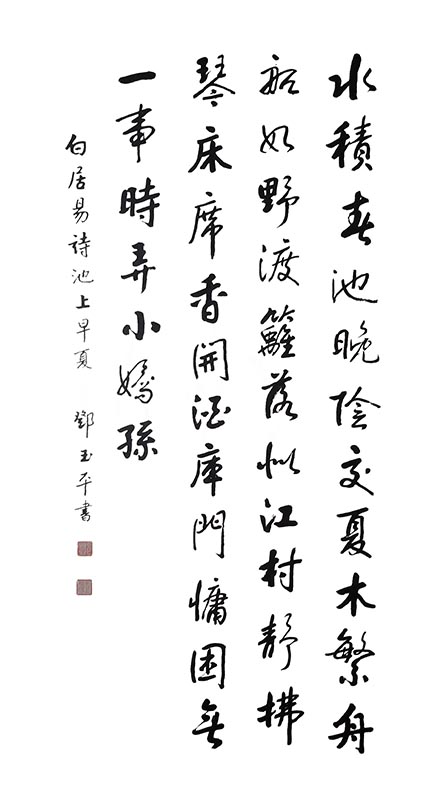 水積春池晚陰交夏木繁舟
船如野渡籬落似江村靜拂
琴床席香開酒庫門慵困無
一事時弄小嬌孫
白居易詩池上早夏 鄧玉平書